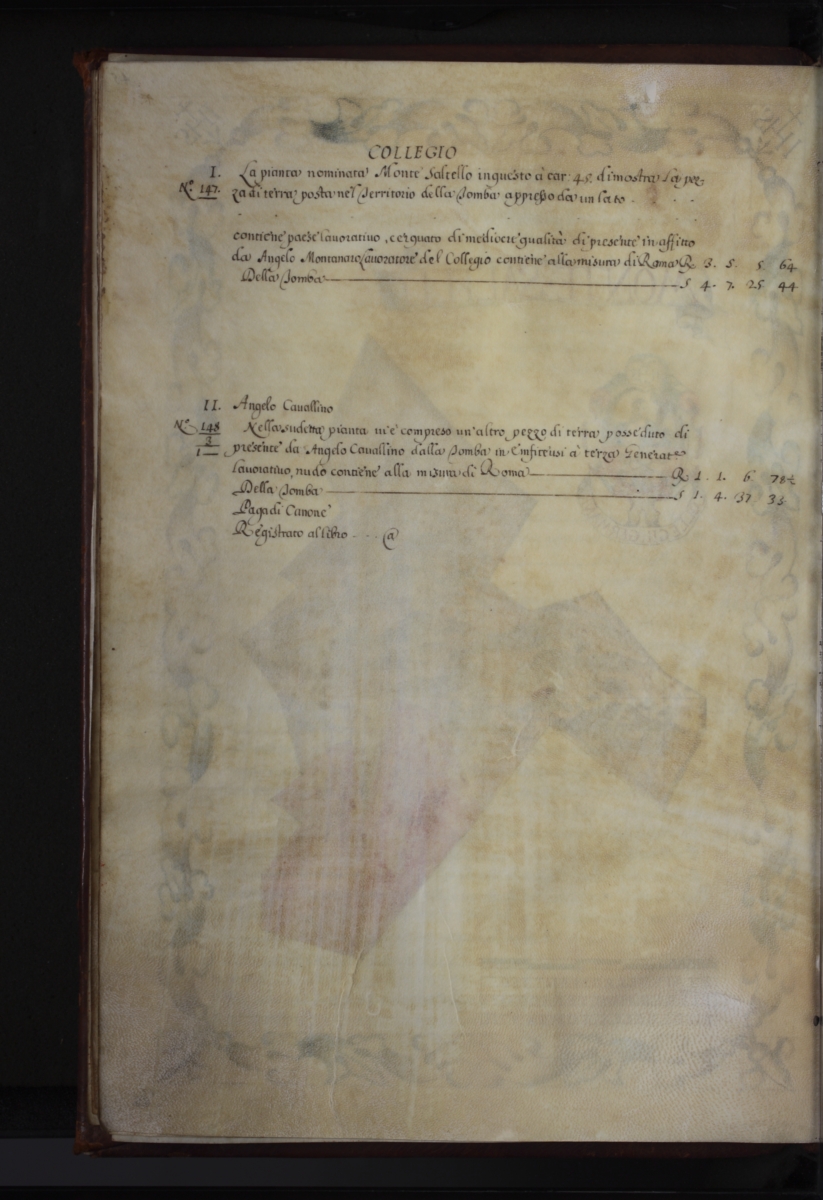 COLLEGIO
I. La pianta nominata Monte Saltello in questo à car: 45. dimostra la pez-
Nº 147. za di terra posta nel Territorio della Tomba appresso da un lato . . .
contiene paese lavorativo, cerquato di mediocre qualità di presente in affitto
da Angelo Montanaro lavoratore del Collegio contiene alla misura di Roma R 3. 5. 5. 64
Della Tomba S 4. 7. 25 44
II. Angelo Cavallino
Nº 148 Nella sudetta pianta vi è compreso un'altro pezzo di terra posseduto di
presente da Angelo Cavallino dalla Tomba in Enfiteusi à terza
lavorativo, nudo contiene alla misura di Roma R 1. 1. 6. 78½
Della Tomba S 1. 4. 37 35
Paga di Canone
Registrato al libro . . . @